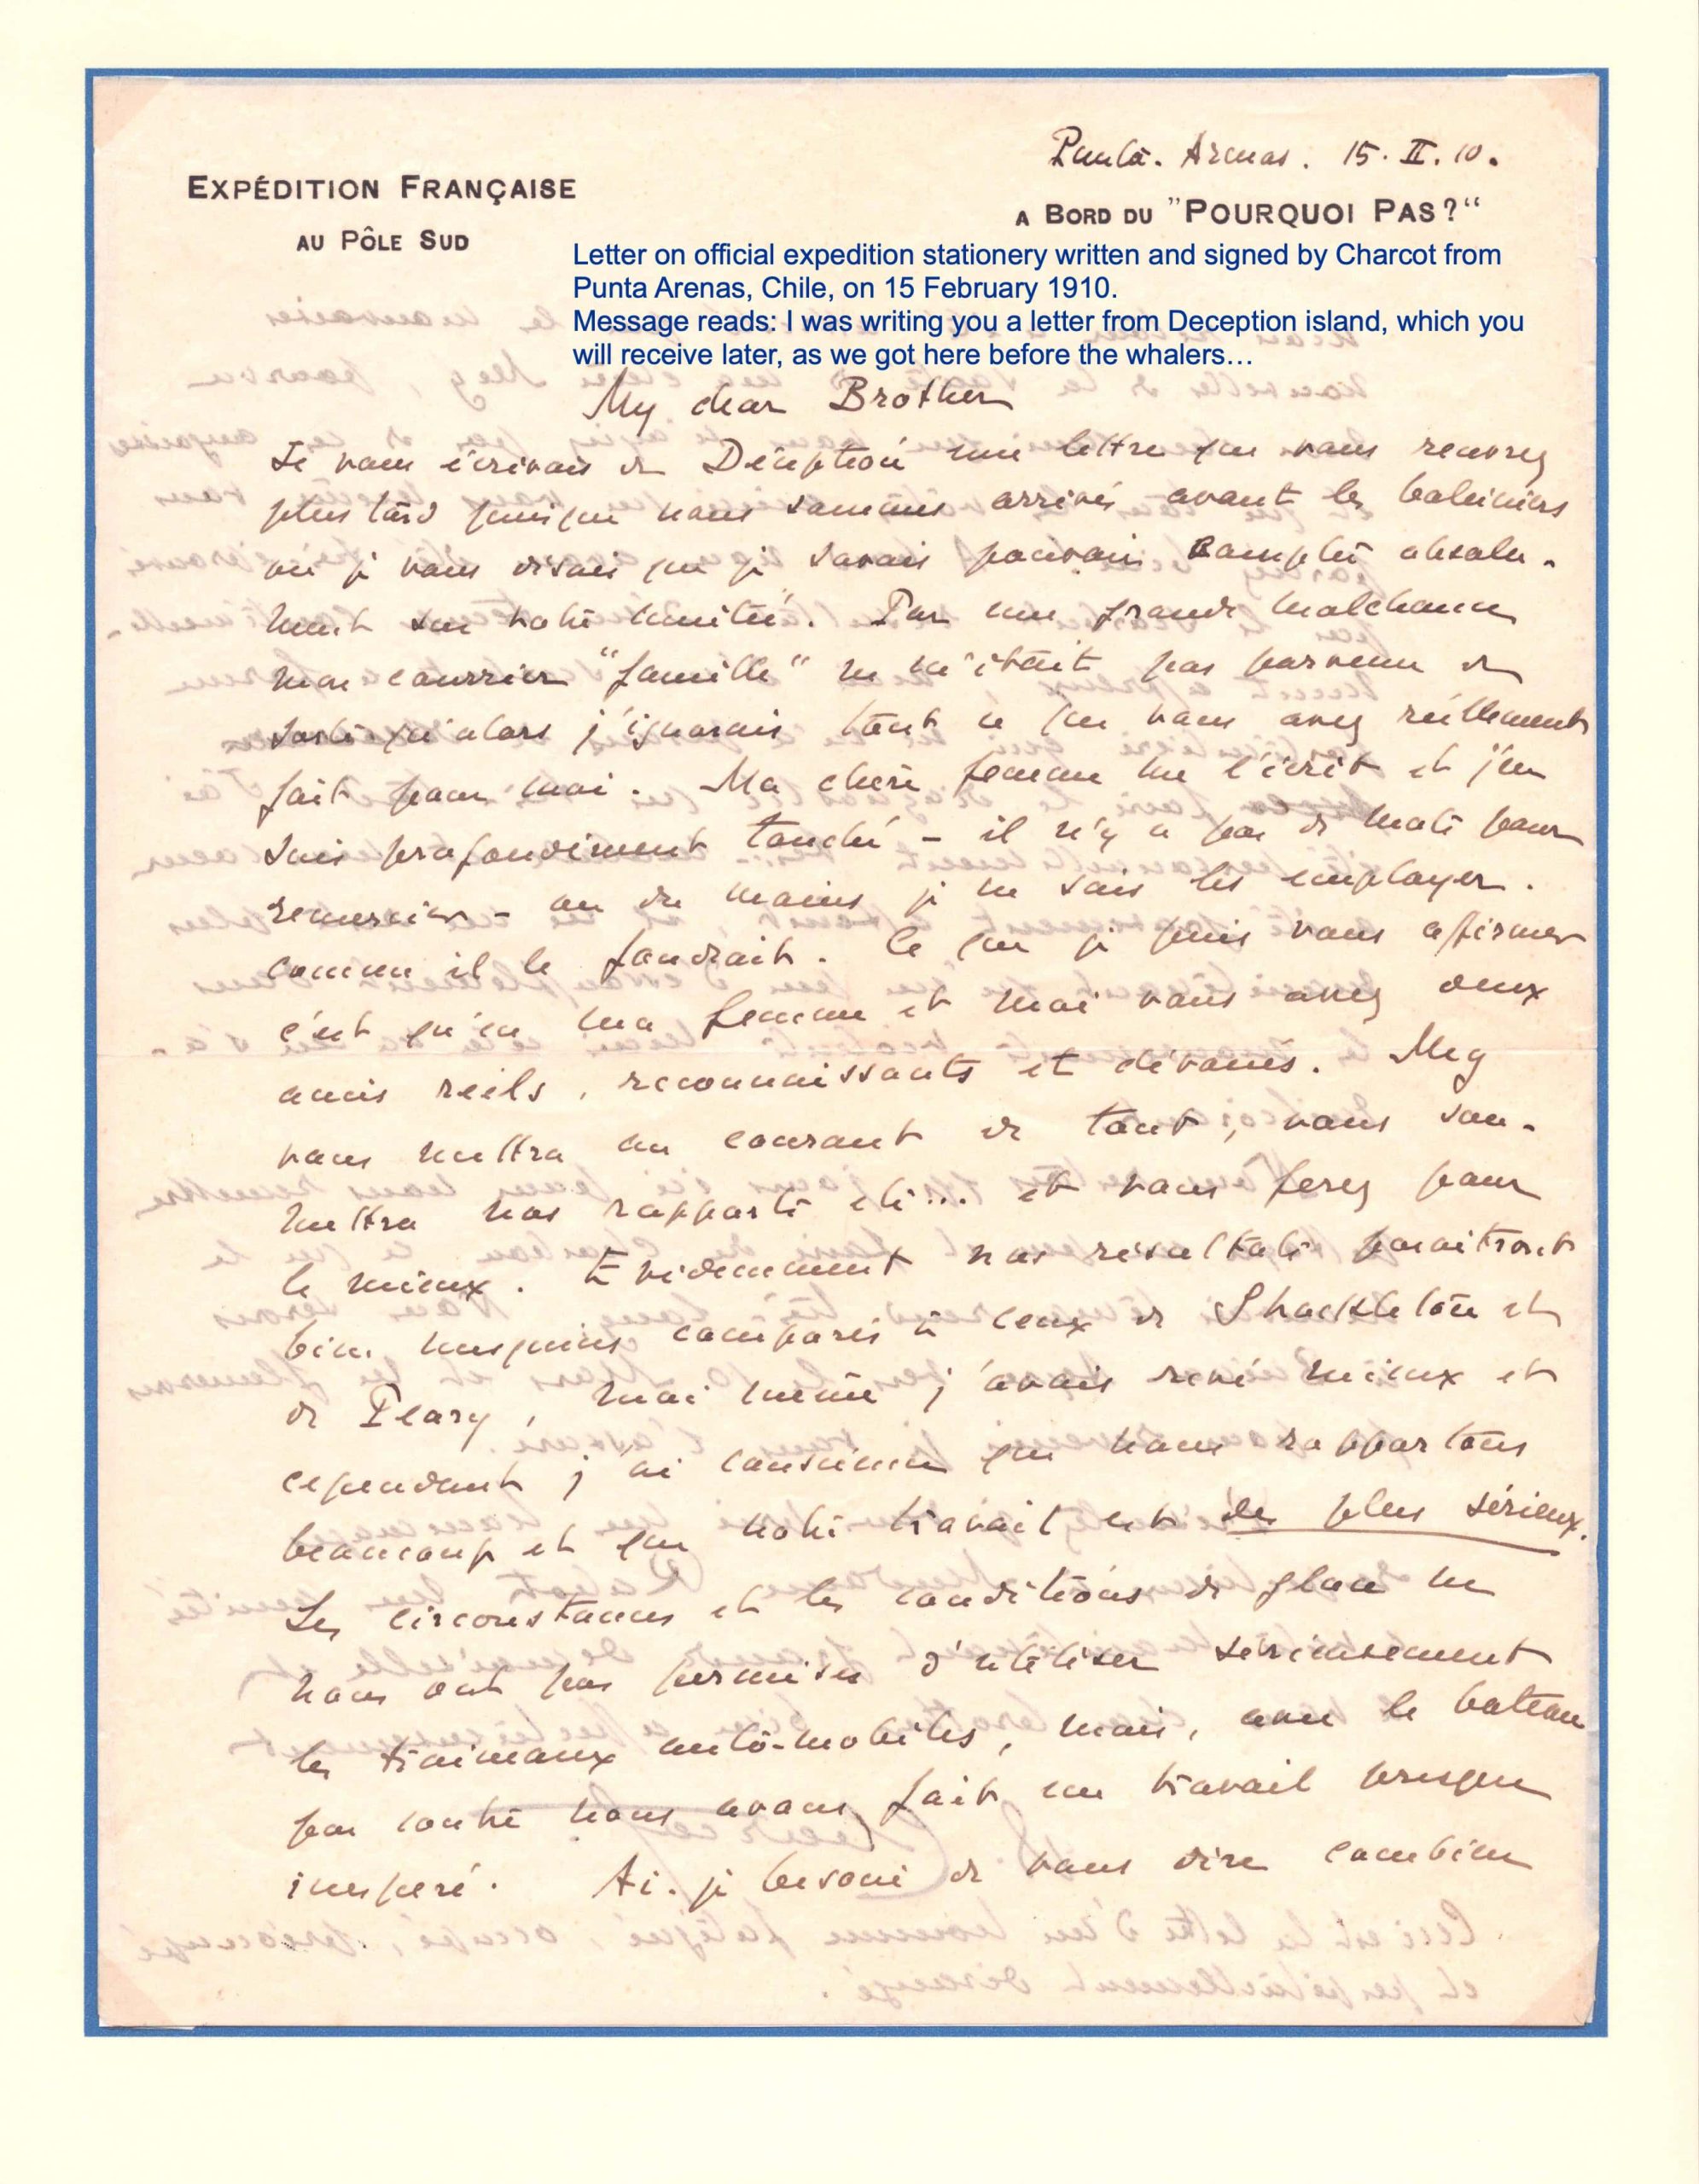 Punta. Arenas. 15. II. 10.
EXPÉDITION FRANÇAISE
AU PÔLE SUD
A BORD DU "POURQUOI PAS?"
Letter on official expedition stationery written and signed by Charcot from
Punta Arenas, Chile, on 15 February 1910.
Message reads: I was writing you a letter from Deception island, which you
will receive later, as we got here before the whalers…
My dear Brother
Je vous écrivais de Déception une lettre que vous recevrez
plus tard puisque nous sommes arrivés avant les baleiniers
où je vous disais que je savais pouvoir compter absolu-
ment sur votre amitié. Par une grande malchance
mon courrier "famille" ne m'était pas parvenu de
sorte qu'alors j'ignorais tout ce que vous avez réellement
fait pour moi. Ma chère femme me l'écrit et j'en
suis profondément touché - il n'y a pas de mots pour
remercier - ou du moins je ne sais les employer.
comme il le faudrait. Ce que je puis vous affirmer
c'est qu'en ma femme et moi vous avez deux
amis réels, reconnaissants et dévoués. Meg
vous mettra au courant de tout, vous sou-
mettra nos rapports etc... et vous ferez pour
le mieux. Evidemment nos résultats paraitront
bien mesquins comparés à ceux de Shackleton et
de Peary, moi même j'avais rêvé mieux et
cependant j'ai conscience que nous rapportons
beaucoup et que notre travail est des plus sérieux.
Les circonstances et les conditions de glace ne
nous ont pas permises d'utiliser sérieusement
les traineaux auto-mobiles, mais, avec le bateau
par contre nous avons fait un travail presque
inespéré. Ai-je besoin de vous dire combien